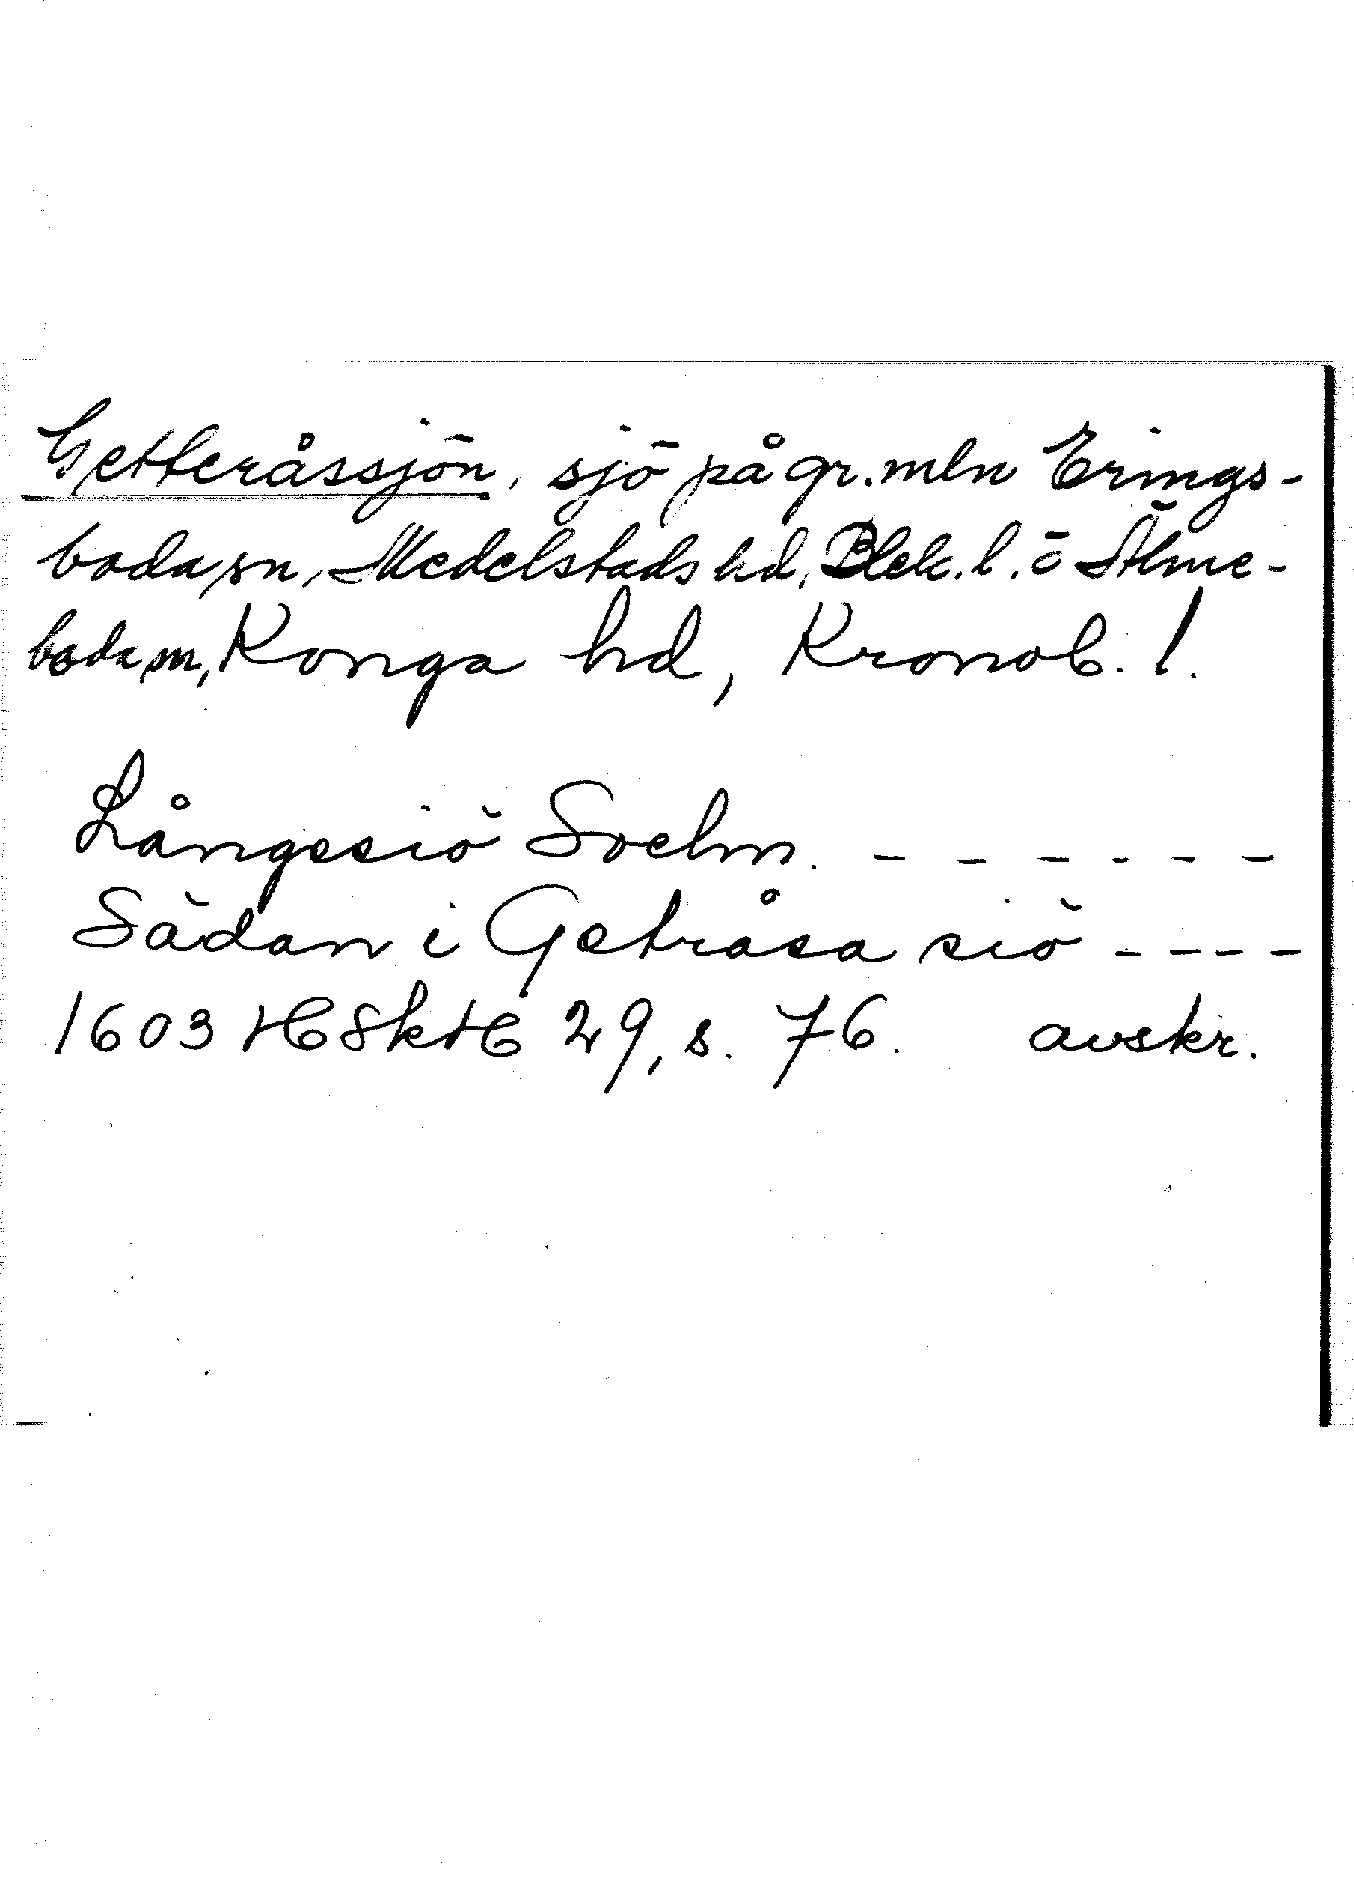 Getteråssjön, sjö på gr. mln Erings-
boda sn, Medelstads hd, Blek. l. o Älme-
boda sn, Konga hd, Kronob. l.
Långesiö Soelm. - - - - - -
Sädan i Getråsa siö - - - -
1603 HSkH 29, s. 76. avskr.